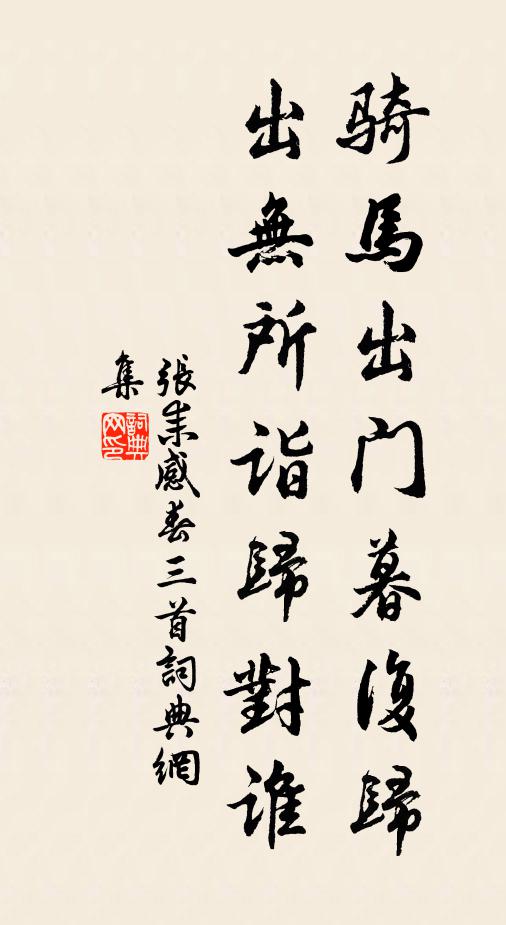 骑馬出门暮復歸
出無所诣歸對谁
張耒感春三首詞典網
集
詞典网印